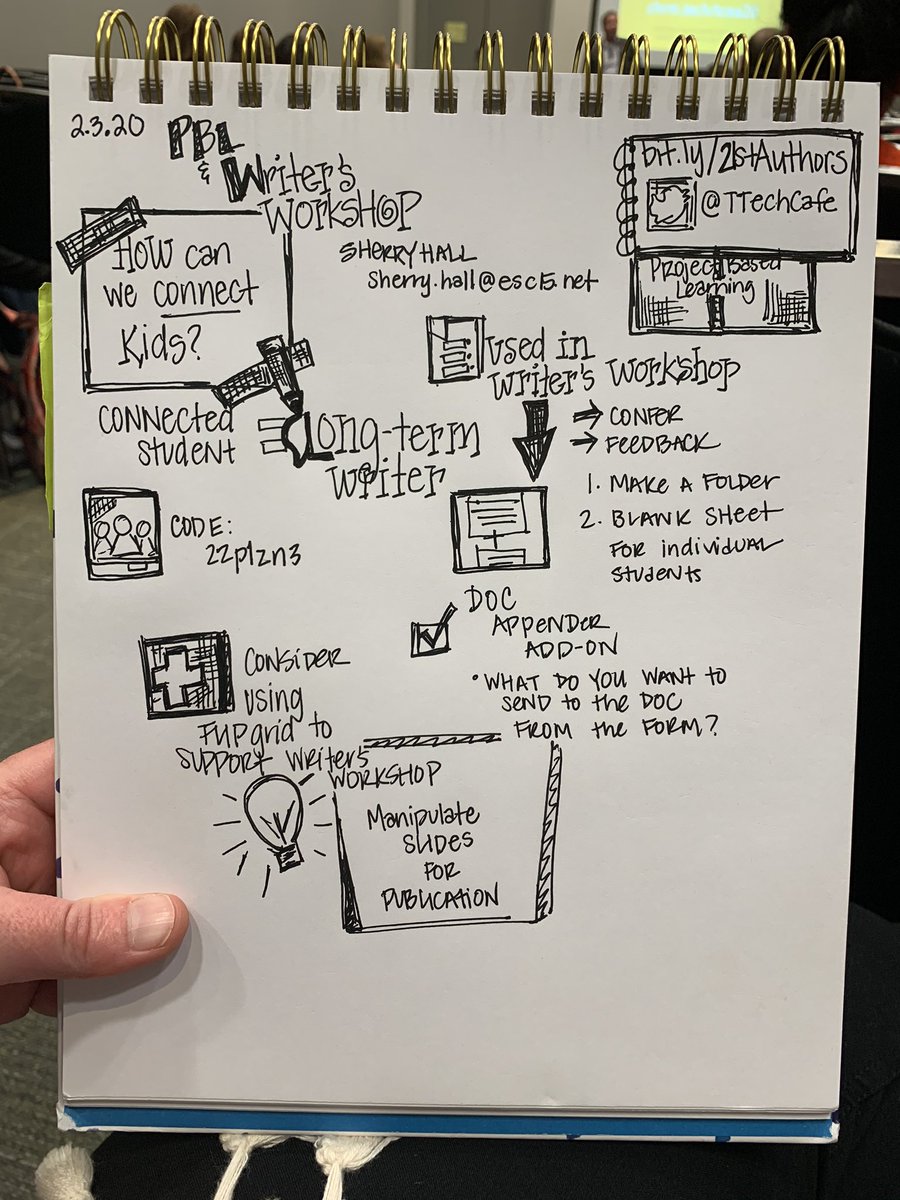 2.3.20
PBL
& Writer's
WORKSHOP
SHERRY HALL
sherry.hall@esc15.net
bit.ly/21stAuthors
@TTechCafe
Project Based
Learning
HOW can
we connect
Kids?
CONNECTED
STUDENT
Long-term
writer
CODE:
22p1zn3
used in
writer's workshop
CONFER
FEEDBACK
1. MAKE A FOLDER
2. BLANK SHEET
FOR individual
students
DOC
APPENDER
ADD-ON
• WHAT DO YOU WANT TO
SEND to the DOC
FROM the FORM?
CONSIDER
using
FlIPgrid to
SUPPORT writer's
WORKSHOP
Manipulate
SLIDES
FOR
PUBLICATION